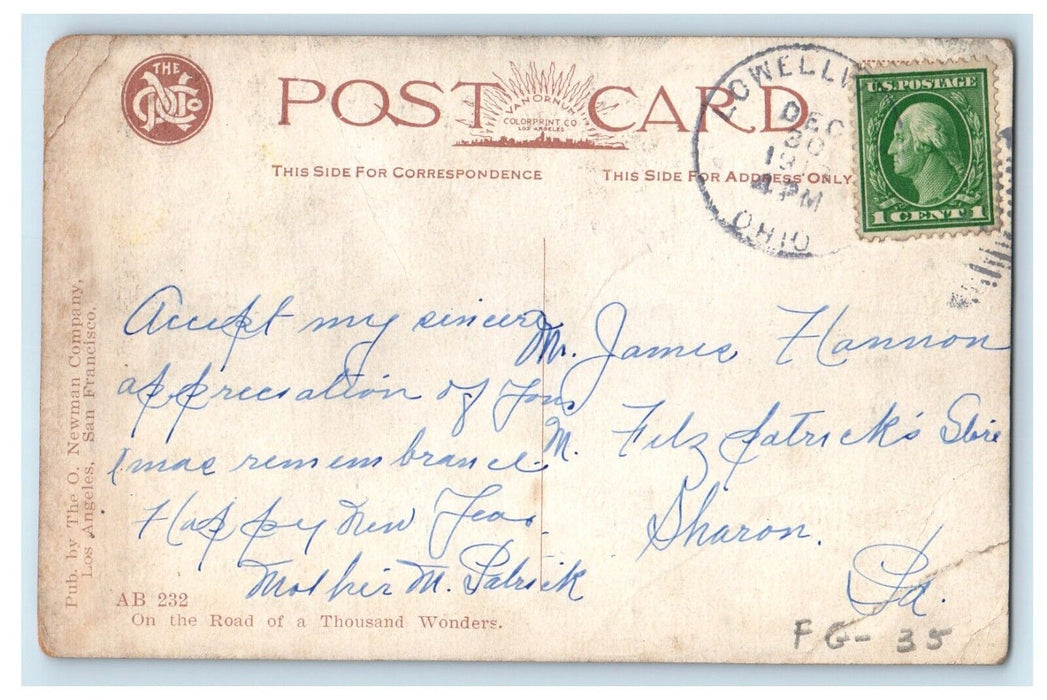 THE
N Co
POST CARD
VAN ORNUM
COLORPRINT CO
LOS ANGELES
THIS SIDE FOR CORRESPONDENCE
THIS SIDE FOR ADDRESS ONLY
LOWELLV
DEC
30
4 PM
OHIO
U.S. POSTAGE
1 CENT 1
Pub. by The O. Newman Company,
Los Angeles, San Francisco.
Accept my sincere
appreciation of your
Xmas remembrance.
Happy New Year.
Mother M. Patrick
Mr. James Hannon
M. Fitzpatrick's Store
Sharon.
Pa.
AB 232
On the Road of a Thousand Wonders.
FG-35